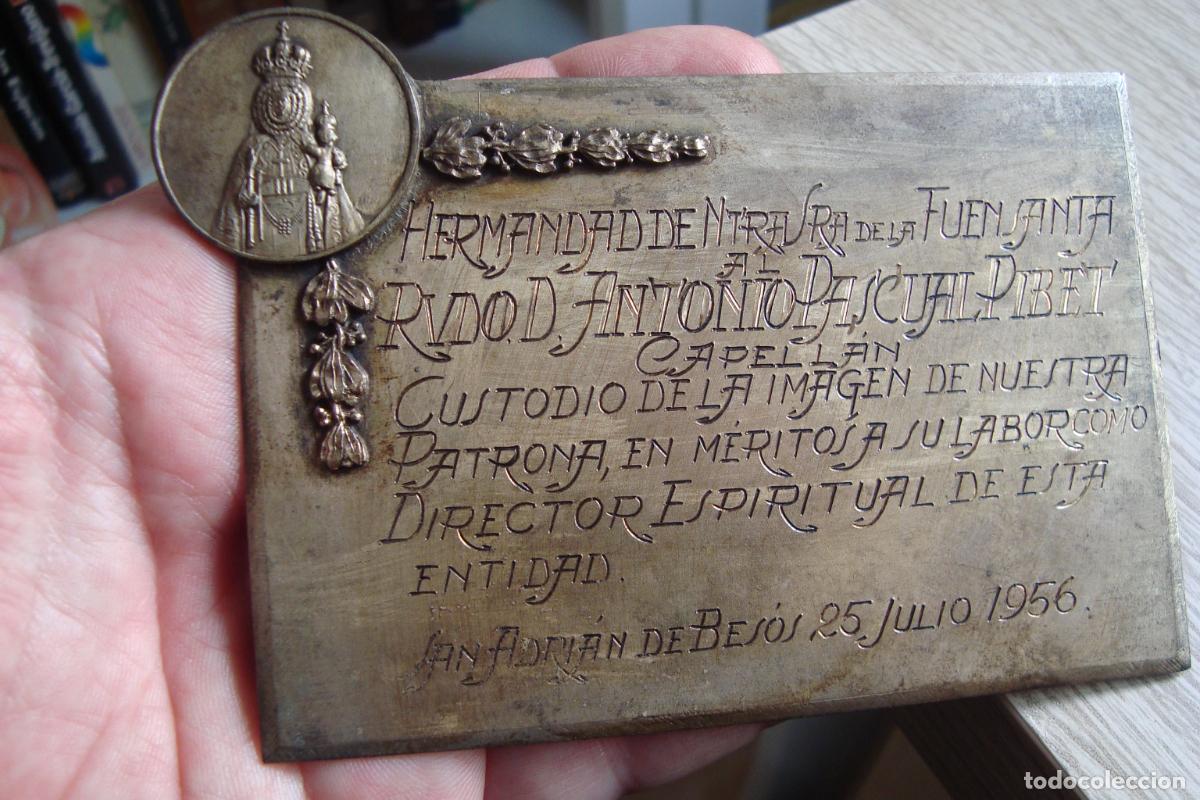 HERMANDAD DE NTRA SRA DE LA FUENSANTA
AL
RVDO. D. ANTONIO PASCUAL PIBET
CAPELLÁN
CUSTODIO DE LA IMÁGEN DE NUESTRA
PATRONA, EN MÉRITOS A SU LABOR COMO
DIRECTOR ESPIRITUAL DE ESTA
ENTIDAD.
SAN ADRIÁN DE BESÓS 25 JULIO 1956.
todocoleccion